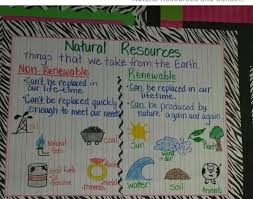 Natural Resources
Things that we take from the Earth.
Non-Renewable
•Can't be replaced in
our life-time.
•Can't be replaced quickly
enough to meet our needs
oil
coal
Natural
Gas
fossil fuels
Rocks
Minerals
Renewable
•Can be replaced in our
lifetime.
•Can be produced by
nature again and again.
Sun
wind
air
Plants
water
Soil
Animals